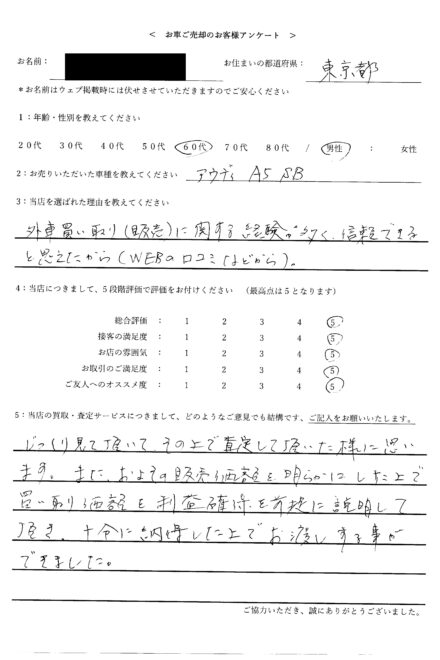 ＜　お車ご売却のお客様アンケート　＞
お名前：　お住まいの都道府県：　東京都
＊お名前はウェブ掲載時には伏せさせていただきますのでご安心ください
1：年齢・性別を教えてください
20代　30代　40代　50代　60代　70代　80代　/　男性　：　女性
2：お売りいただいた車種を教えてください　アウディ　A5 SB
3：当店を選ばれた理由を教えてください
外車買い取り(販売)に関する経験が多く、信頼できる
と思えたから(WEBの口コミなどから)。
4：当店につきまして、5段階評価で評価をお付けください　（最高点は5となります）
総合評価　：　1　2　3　4　5
接客の満足度　：　1　2　3　4　5
お店の雰囲気　：　1　2　3　4　5
お取引のご満足度　：　1　2　3　4　5
ご友人へのオススメ度　：　1　2　3　4　5
5：当店の買取・査定サービスにつきまして、どのようなご意見でも結構です、ご記入をお願いいたします。
じっくり見て頂いて、その上で査定して頂いた様に思い
ます。また、およその販売価額を明らかにした上で
買い取り価額を利益確保を前提に説明して
頂き、十分に納得した上でお渡しする事が
できました。
ご協力いただき、誠にありがとうございました。